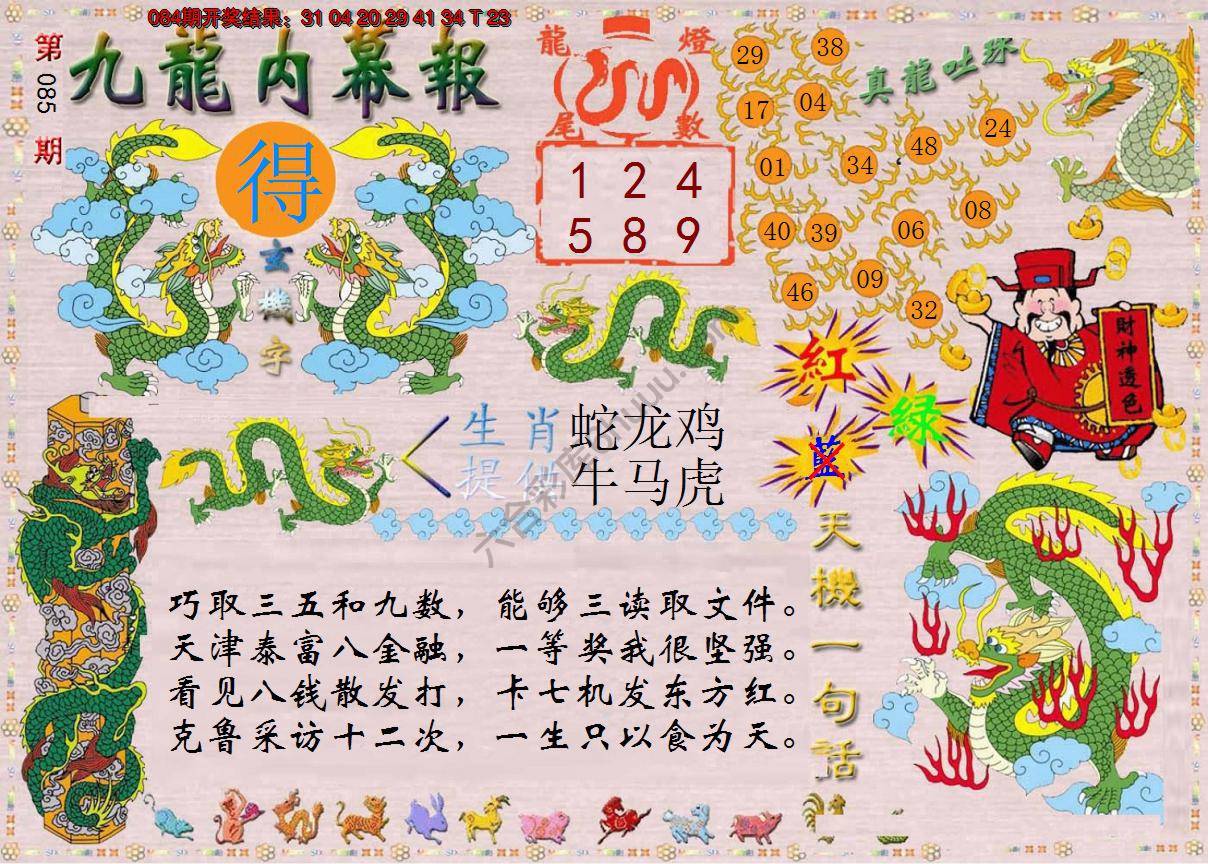 084期开奖结果：31 04 20 29 41 34 T 23
第085期
九龍内幕報
得
玄機字
龍燈
尾數
1 2 4
5 8 9
真龍吐珠
29
38
17
04
01
34
48
24
40
39
06
08
46
09
32
財神透色
紅
綠
藍
生肖
提供
蛇龙鸡
牛马虎
天機一句話
巧取三五和九数，能够三读取文件。
天津泰富八金融，一等奖我很坚强。
看见八钱散发打，卡七机发东方红。
克鲁采访十二次，一生只以食为天。